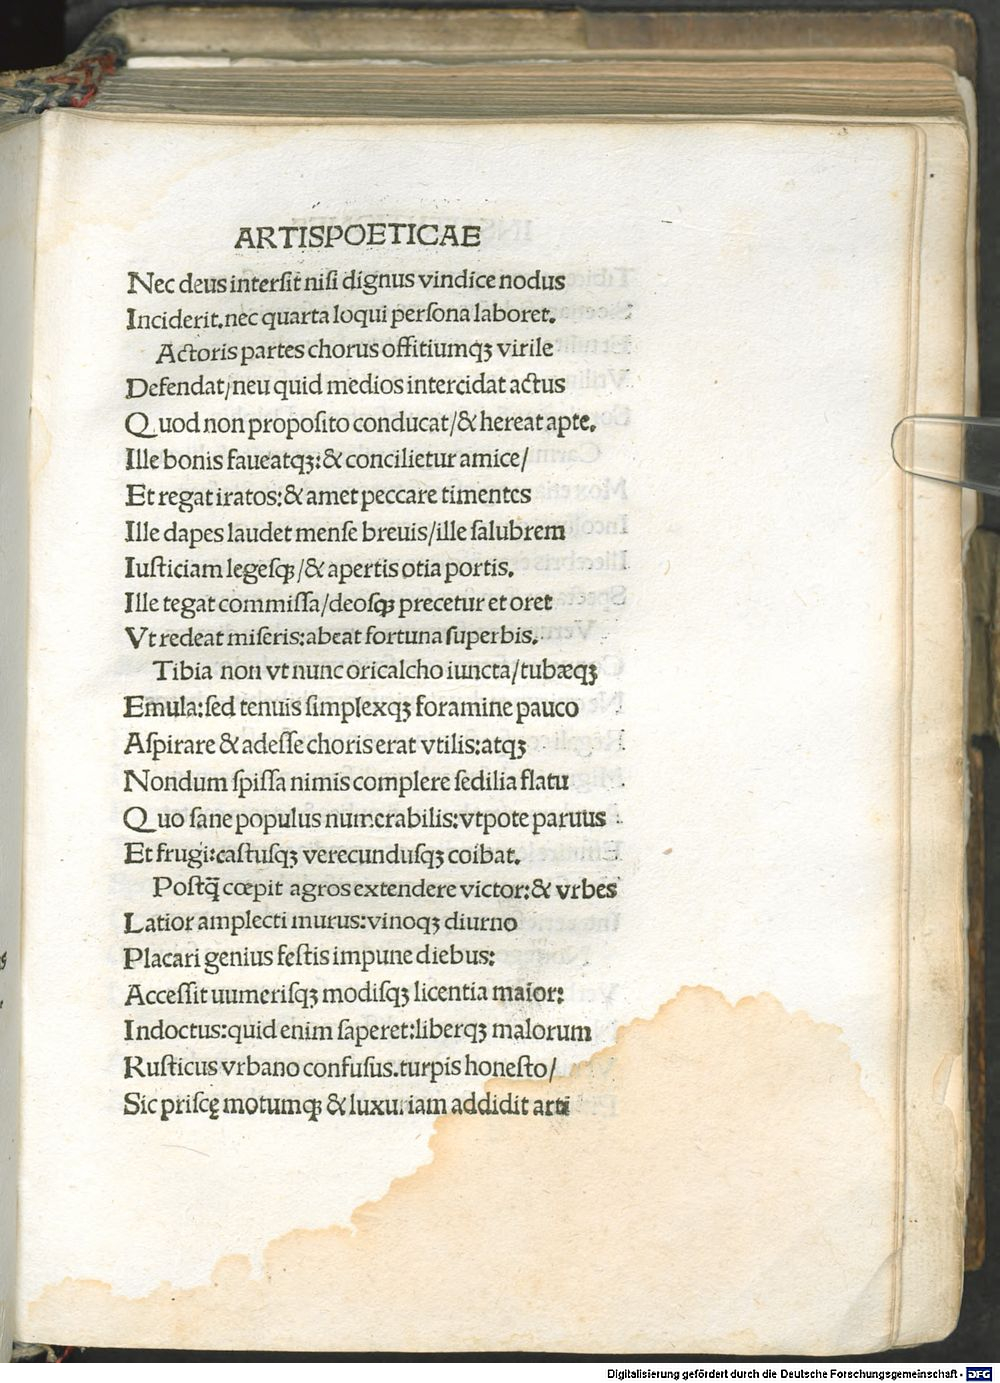 ARTISPOETICAE
Nec deus intersit nisi dignus vindice nodus
Inciderit.nec quarta loqui persona laboret.
Actoris partes chorus offitiumqꝫ virile
Defendat/neu quid medios intercidat actus
Quod non proposito conducat/& hereat apte.
Ille bonis faueatqꝫ:& concilietur amice/
Et regat iratos:& amet peccare timentes
Ille dapes laudet mense breuis/ille salubrem
Iusticiam legesqꝫ/& apertis otia portis.
Ille tegat commissa/deosqꝫ precetur et oret
Vt redeat miseris:abeat fortuna superbis.
Tibia non vt nunc oricalcho iuncta/tubæqꝫ
Emula:sed tenuis simplexqꝫ foramine pauco
Aspirare & adesse choris erat vtilis:atqꝫ
Nondum spissa nimis complere sedilia flatu
Quo sane populus numerabilis:vtpote paruus
Et frugi:castusqꝫ verecundusqꝫ coibat.
Postq̄ cœpit agros extendere victor:& vrbes
Latior amplecti murus:vinoqꝫ diurno
Placari genius festis impune diebus:
Accessit uumerisqꝫ modisqꝫ licentia maior:
Indoctus:quid enim saperet:liberqꝫ malorum
Rusticus vrbano confusus.turpis honesto/
Sic priscę motumqꝫ & luxuriam addidit arti
Digitalisierung gefördert durch die Deutsche Forschungsgemeinschaft - DFG